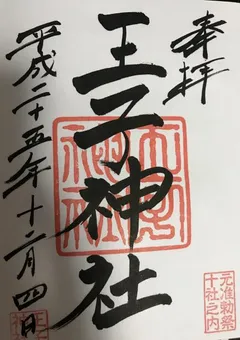 奉拝
王子神社
平成二十五年十二月四日
元准勅祭
十社之内